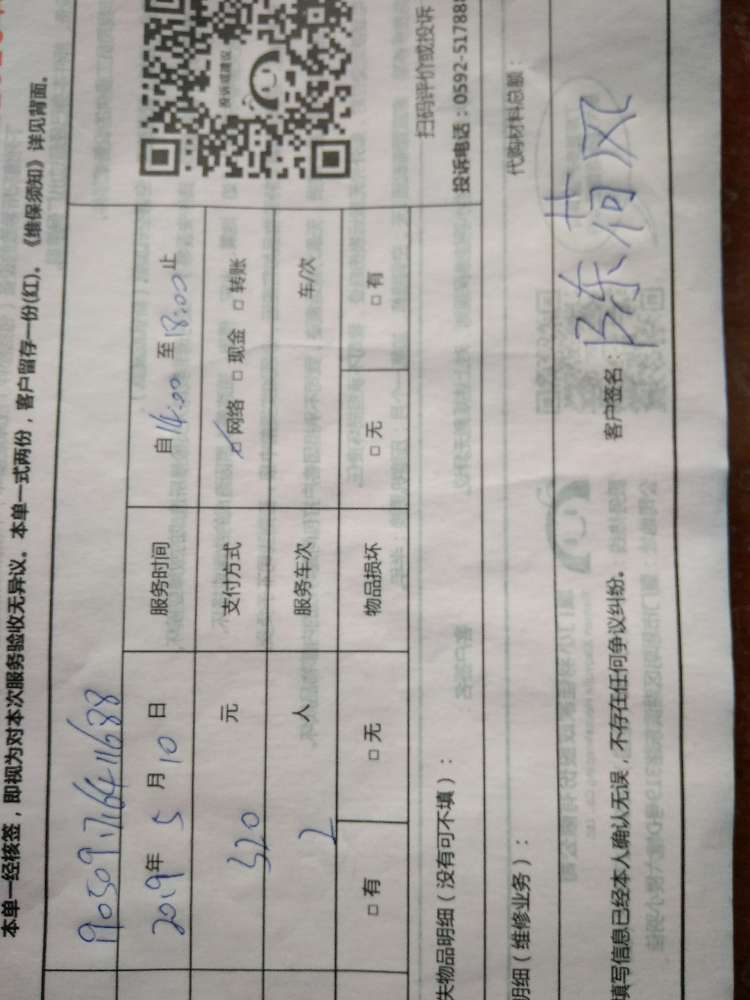 本单一经核签，即视为对本次服务验收无异议。本单一式两份，客户留存一份(红)。《维保须知》详见背面。
1905091764411688
2019年 5 月 10 日 服务时间 自 14:00 至 18:00 止
320 元 支付方式 ☑ 网络 □ 现金 □ 转账
2 人 服务车次 车/次
□ 有 □ 无 物品损坏 □ 无 □ 有
投诉或建议
扫码评价或投诉
投诉电话：0592-51788
失物品明细（没有可不填）：
明细（维修业务）： 代购材料总额：
填写信息已经本人确认无误，不存在任何争议纠纷。 客户签名：陈荷风